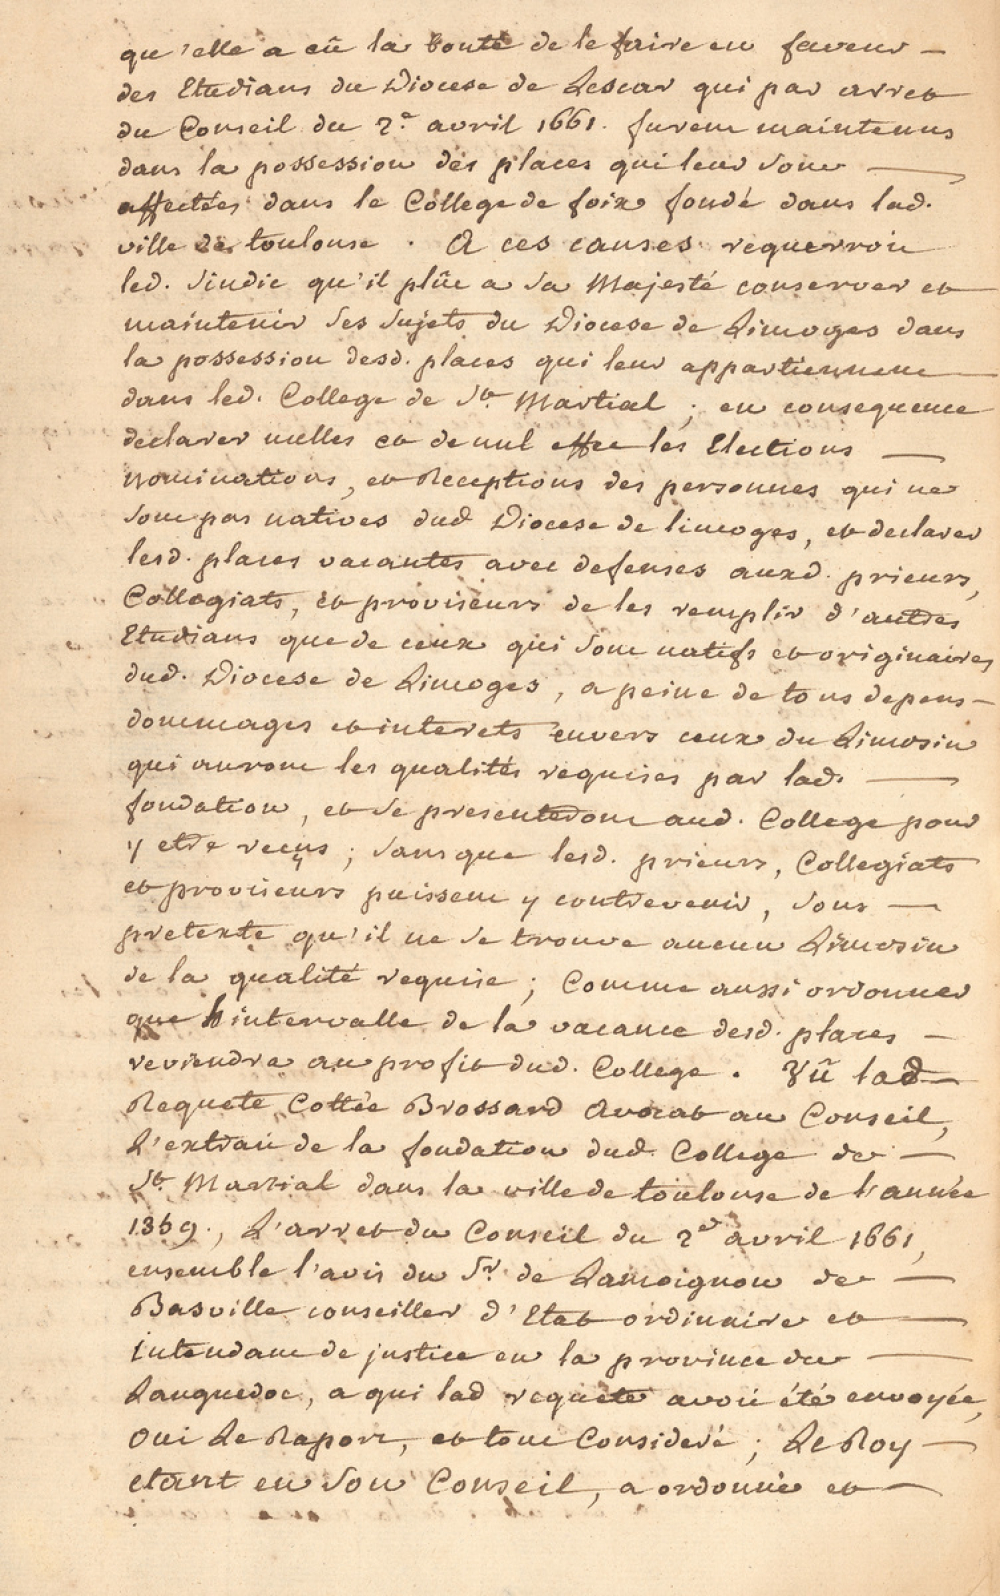 qu'elle a eû la bonté de le faire en faveur
des Etudians du Diocese de Lescar qui par arret
du Conseil du 2.e avril 1661. furent maintenus
dans la possession des places qui leur sont
affectées dans le College de foix fondé dans lad.
ville de toulouse. A ces causes requerroit
led. Sindic qu'il plût a Sa Majesté conserver et
maintenir Ses Sujets du Diocese de Limoges dans
la possession desd. places qui leur appartiennent
dans led. College de St. Martial; en consequence
declarer nulles et de nul effet les Elections
Nominations, et Receptions des personnes qui ne
Sont pas natives dud Diocese de limoges, et declarer
lesd. places vacantes avec defenses auxd. prieurs,
Collegiats, et proviseurs de les remplir d'autres
Etudians que de ceux qui Sont natifs et originaires
dud. Diocese de Limoges, a peine de tous depens
dommages et interets envers ceux du Limosin
qui auront les qualités requises par lad.
fondation, et Se presenteront aud. College pour
y etre reçus; Sans que lesd. prieurs, Collegiats
et proviseurs puissent y contrevenir, Sous
pretexte qu'il ne Se trouve aucun Limosin
de la qualité requise; Comme aussi ordonner
que l'intervalle de la vacance desd. places
reviendra au profit dud. College. Vû lad
Requete Cottée Brossard Avocat au Conseil,
L'extrait de la fondation dud. College de
St. Martial dans la ville de toulouse de l'année
1369., L'arret du Conseil du 2.e avril 1661,
ensemble l'avis du Sr. de Lamoignon de
Basville conseiller d'Etat ordinaire et
intendant de justice en la province de
Languedoc, a qui lad requete avoit été envoyée,
Oui Le Raport, et tout Consideré; Le Roy
etant en Son Conseil, a ordonné et